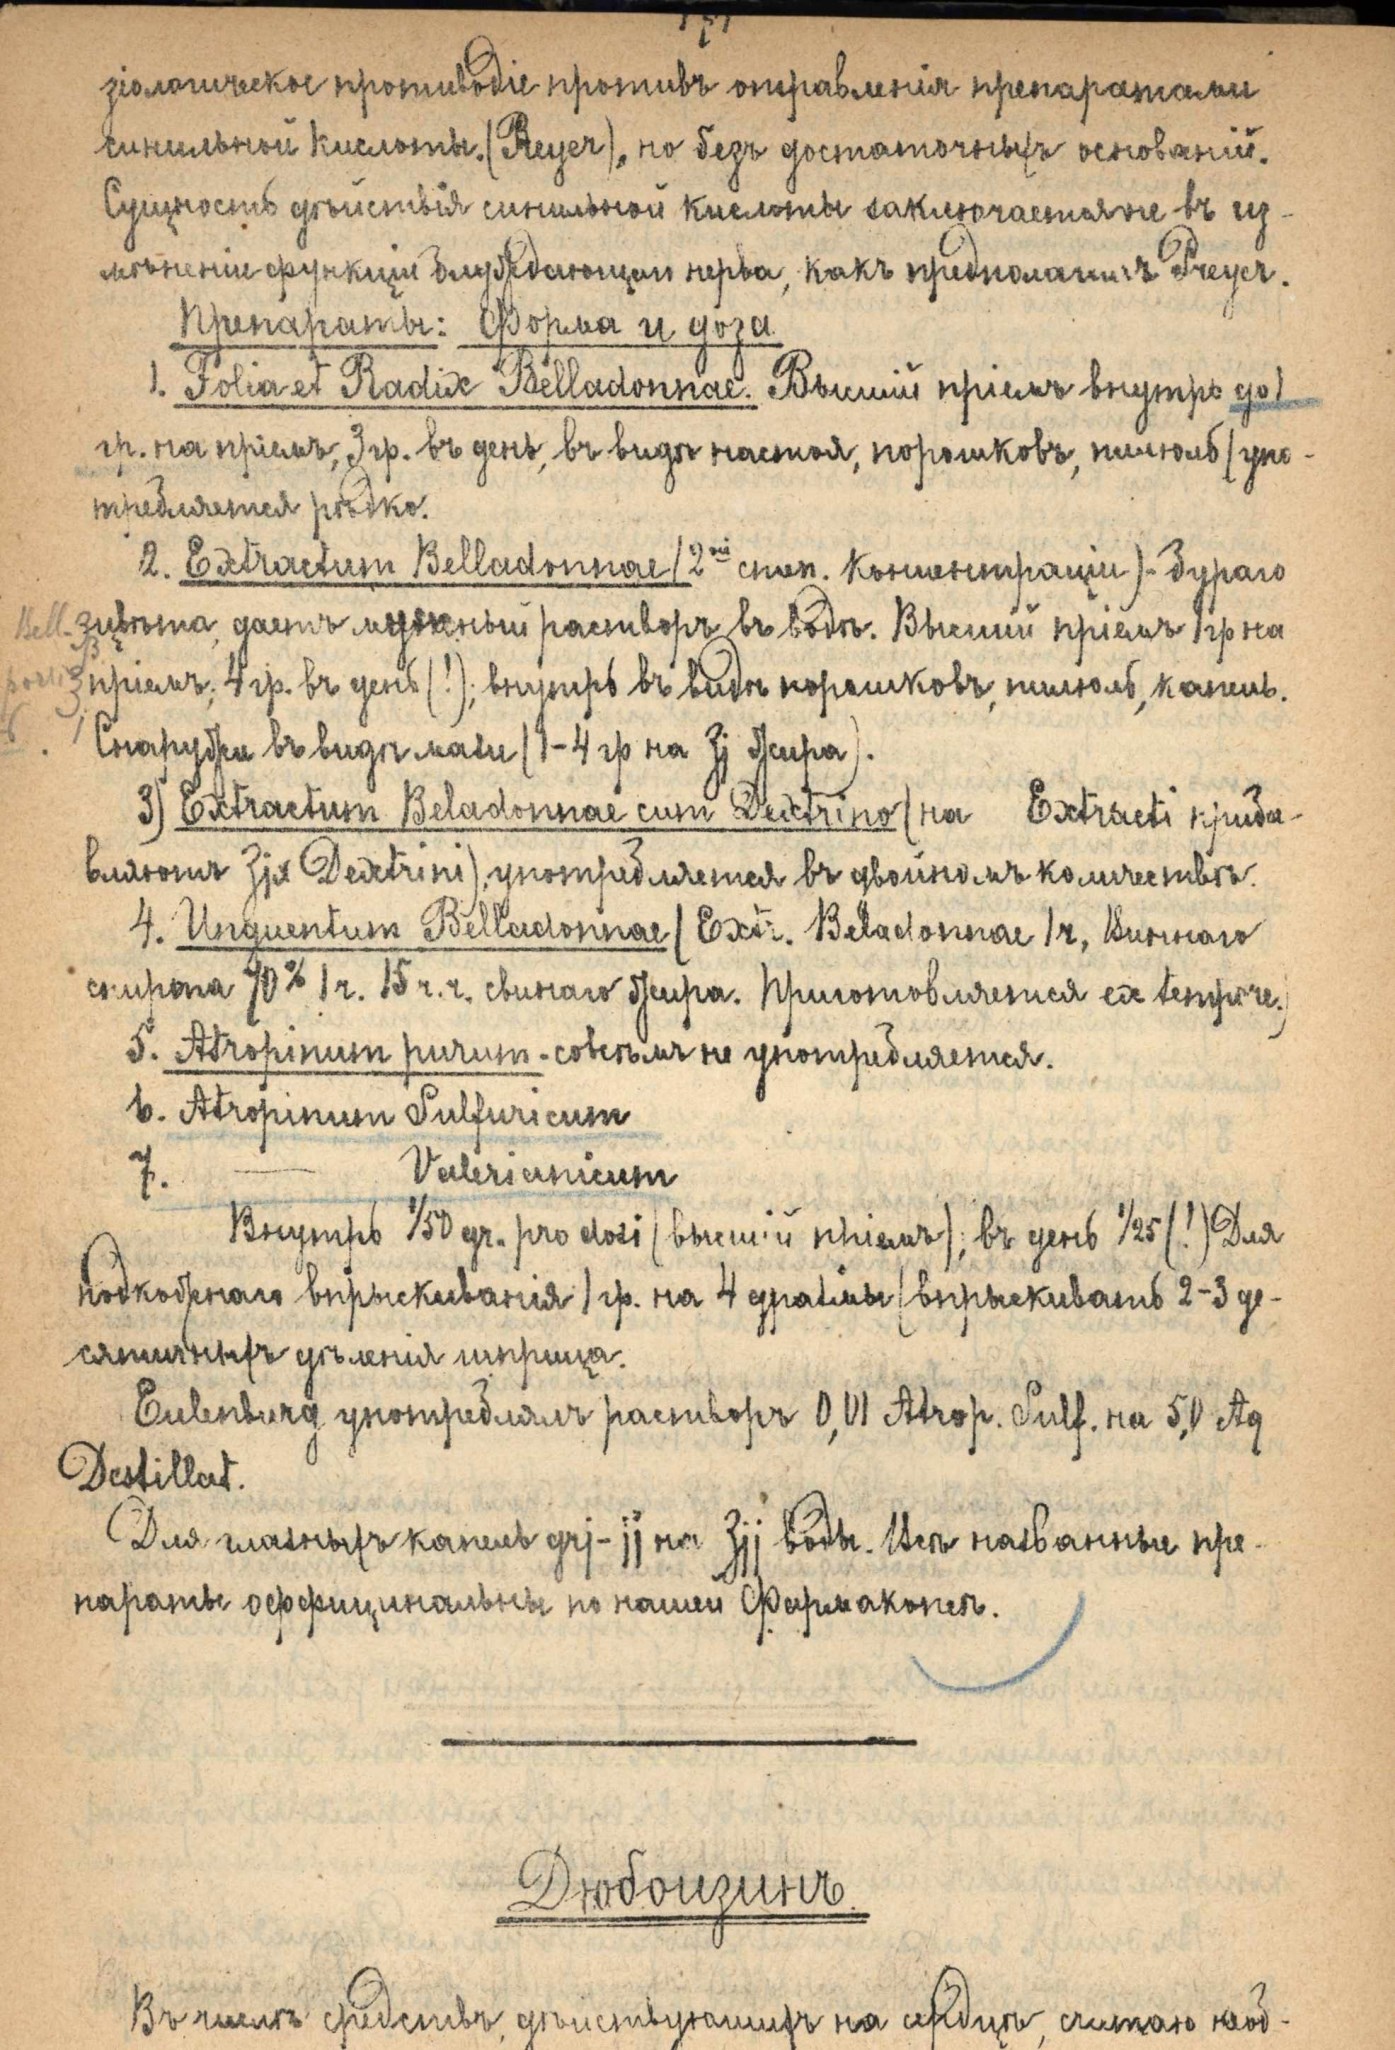 зіологическое противоѣдіе противъ отравленія препаратами
синильной кислоты (Preyer), но безъ достаточныхъ основаній.
Сущность дѣйствія синильной кислоты заключается не въ из-
мѣненіи функціи блуждающаго нерва, какъ предполагаетъ Preyer.
Препараты: Форма и доза
1. Folia et Radix Belladonnae. Высшій пріемъ внутрь до 1
гр. на пріемъ, 3 гр. въ день, въ видѣ настоя, порошковъ, пилюль (упо-
требляется рѣдко.
2. Extractum Belladonnae (2ой степ. концентраціи) - бураго
цвѣта, даетъ мутный растворъ въ водѣ. Высшій пріемъ 1 гр на
пріемъ; 4 гр. въ день (!); внутрь въ видѣ порошковъ, пилюль, капель.
Снаружи въ видѣ мази (1-4 гр на ʒj жира).
3) Extractum Beladonnae cum Dextrino (на Extracti приба-
вляютъ Dextrini), употребляется въ двойномъ количествѣ.
4. Unguentum Belladonnae (Extr. Beladonnae 1 ч, Виннаго
спирта 70% 1 ч. 15 ч.ч. свинаго жира. Приготовляется ex tempore.)
5. Atropinum purum - совсѣмъ не употребляется.
6. Atropinum Sulfuricum
7. — Valerianicum
Внутрь 1/50 gr. pro dosi (высшій пріемъ); въ день 1/25 (!) Для
подкожнаго впрыскиванія 1 гр. на 4 драхмы (впрыскивать 2-3 де-
сятичныхъ дѣленія шприца.
Eulenburg употреблялъ растворъ 0,01 Atrop. Sulf. на 5,0 Aq
Destillat.
Для глазныхъ капель grj-jj на ʒjj воды. Всѣ названные пре-
параты оффицинальны по нашей Фармакопеѣ.
Дюбоизинъ.
Въ числѣ средствъ, дѣйствующихъ на сердце, считаю необ-